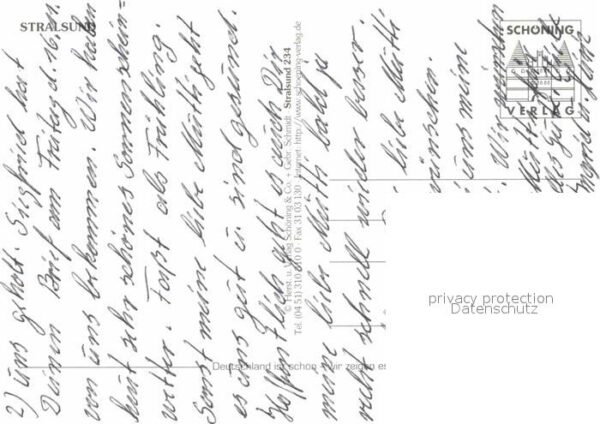 STRALSUND
2) uns geholt. Siegfried hat
Deinen Brief am Freitag d. 16. 
von uns bekommen. Wir haben
heut sehr schönes Sonnenschein=
wetter. Fast als Frühling.
Sonst meine liebe Mutti geht
es uns gut u. sind gesund.
Hoffentlich geht es auch Dir
meine liebe Mutti bald ja
recht schnell wieder besser.
liebe Mutti
wünschen
uns meine
Wir
© Horst u. Verlag Schöning & Co. + Gebr. Schmidt Stralsund 234
Tel. (04 51) 310 310 0 · Fax 31 03 130 · Internet: http://www.schoening-verlag.de
SCHÖNING
VERLAG
Deutschland ist schön - wir zeigen es
privacy protection
Datenschutz